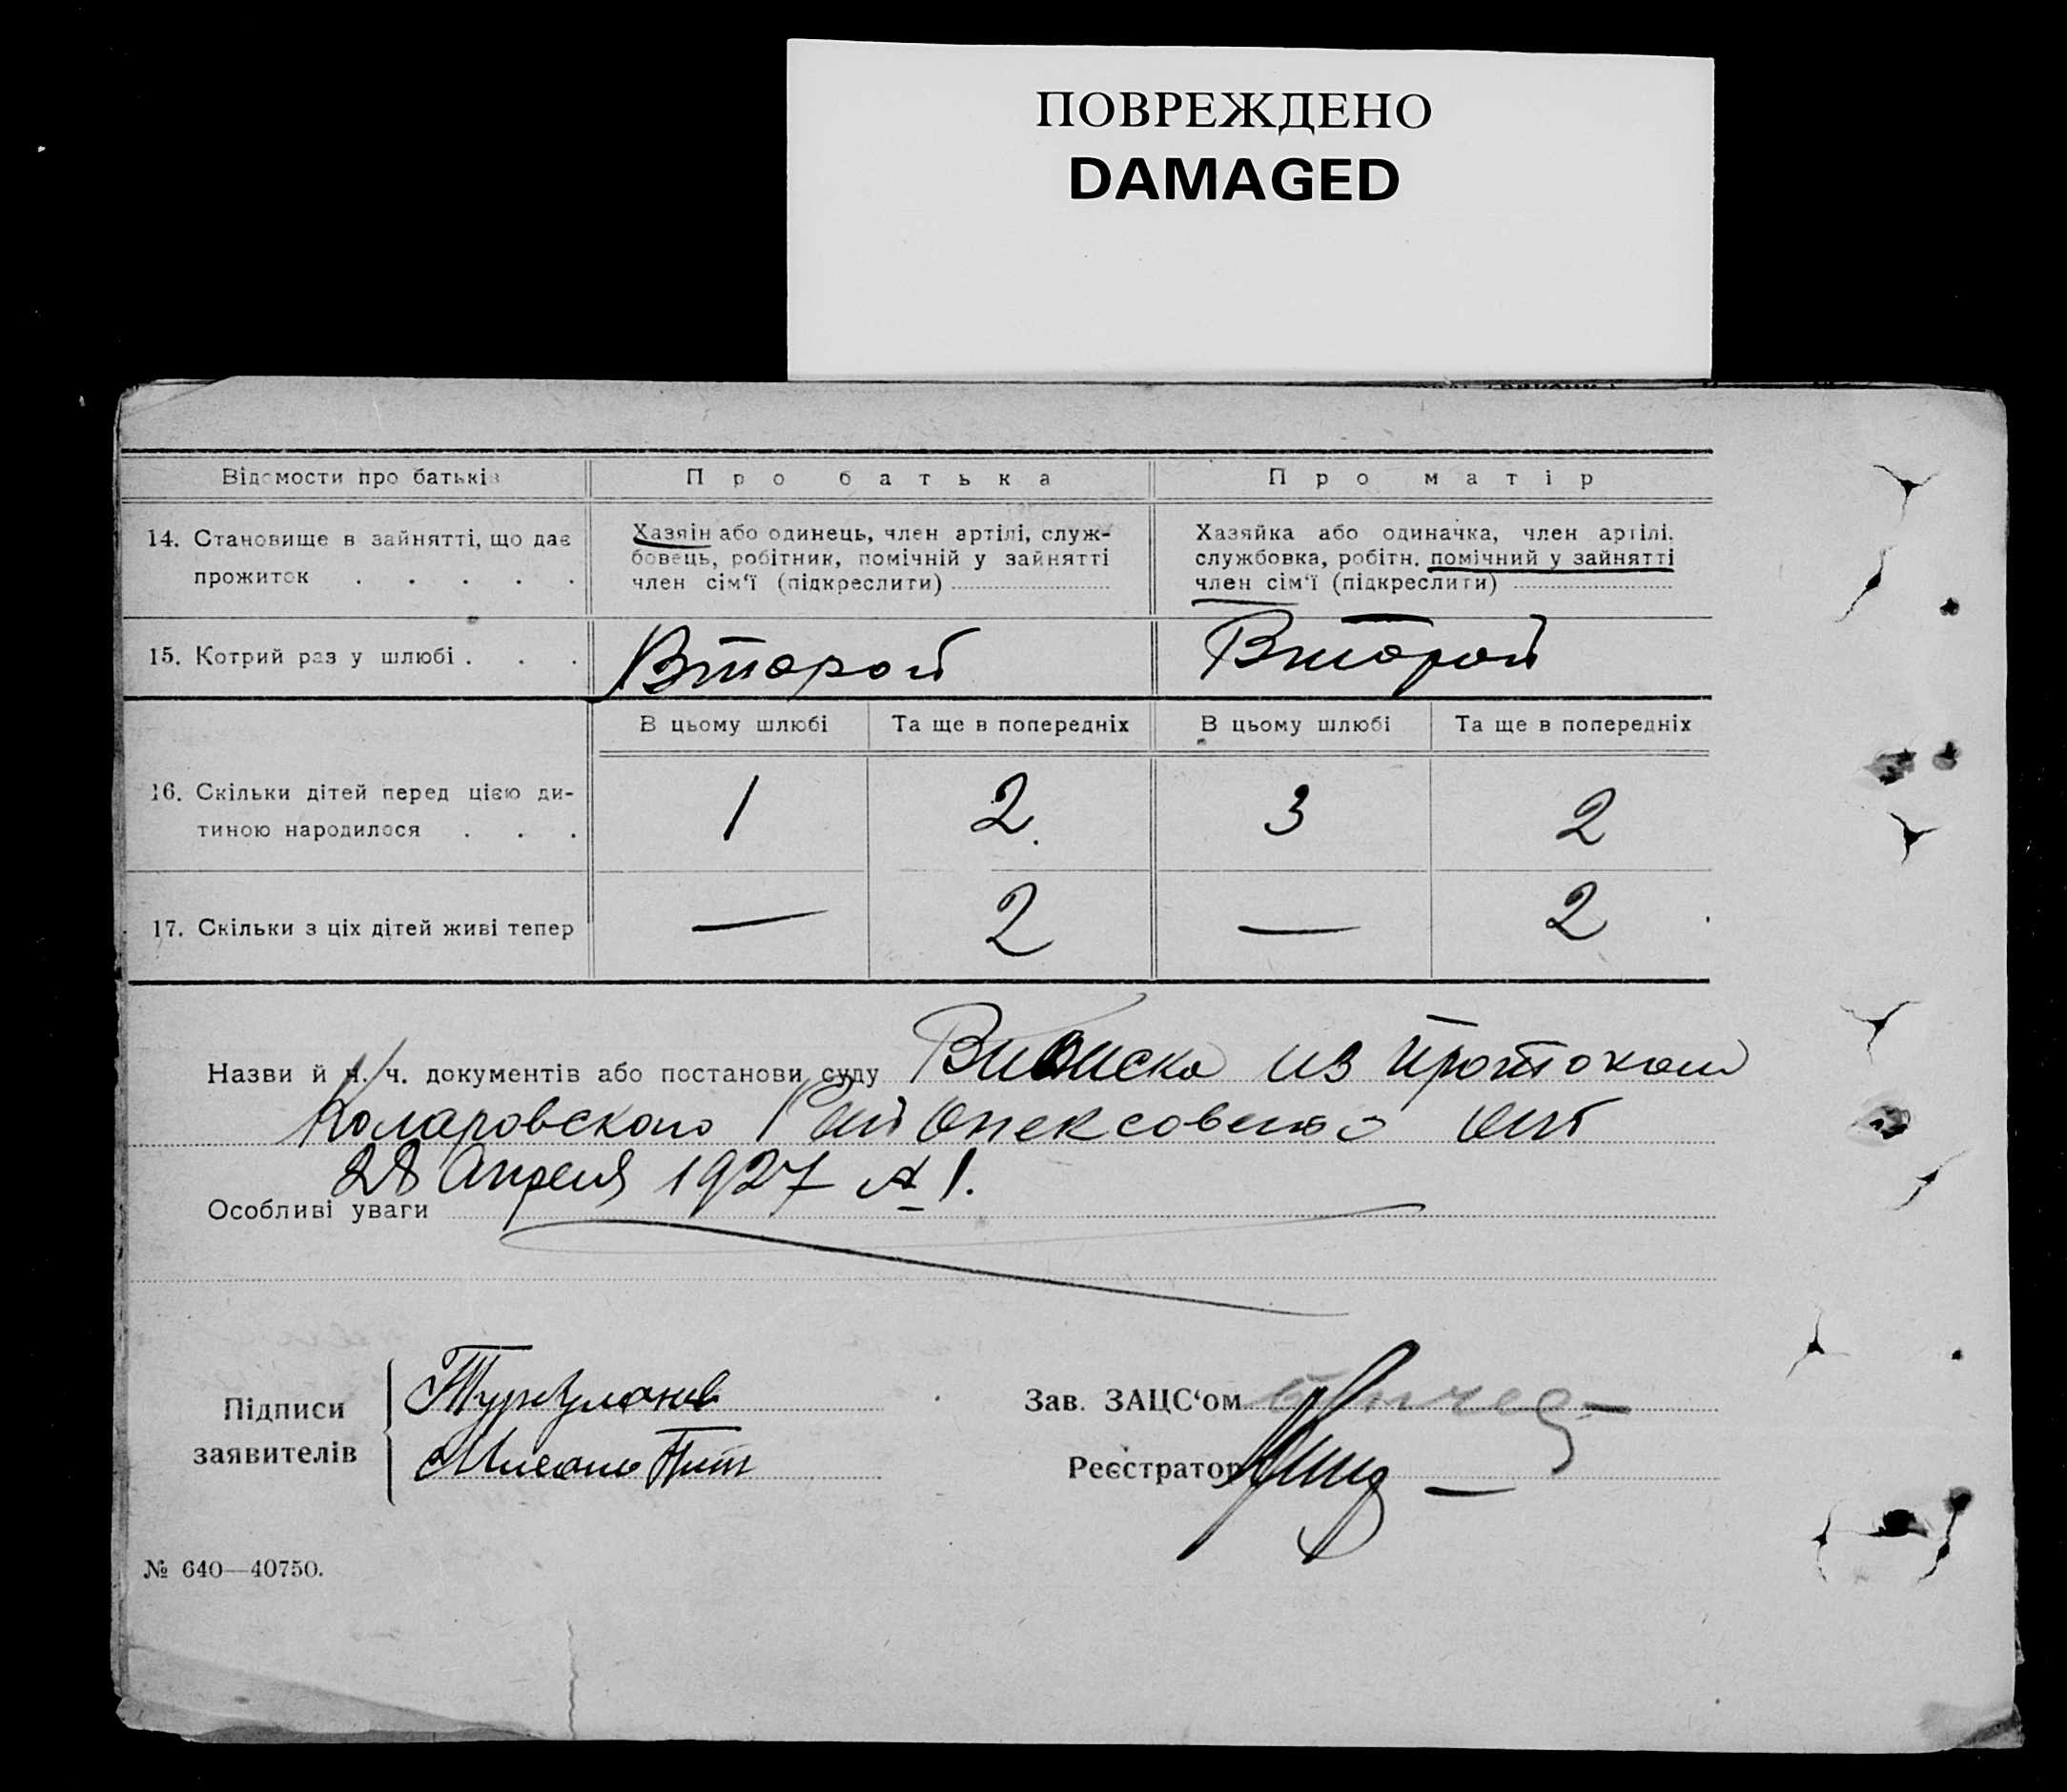 ПОВРЕЖДЕНО
DAMAGED
Відомости про батьків
Про батька
Про матір
14. Становище в зайнятті, що дає
прожиток . . . . .
Хазяїн або одинець, член артілі, служ-
бовець, робітник, помічній у зайнятті
член сім'ї (підкреслити)
Хазяйка або одиначка, член артілі,
службовка, робітн. помічний у зайнятті
член сім'ї (підкреслити)
15. Котрий раз у шлюбі . . .
Второй
Второй
В цьому шлюбі
Та ще в попередніх
В цьому шлюбі
Та ще в попередніх
16. Скільки дітей перед цією ди-
тиною народилося . . .
1
2.
3
2
17. Скільки з ціх дітей живі тепер
—
2
—
2
Назви й н. ч. документів або постанови суду Виписка из протокола
Коларовского Райопексовета от
28 Апреля 1927 № 1.
Особливі уваги
Підписи
заявителів
Зав. ЗАЦС‘ом
Реєстратор
№ 640—40750.